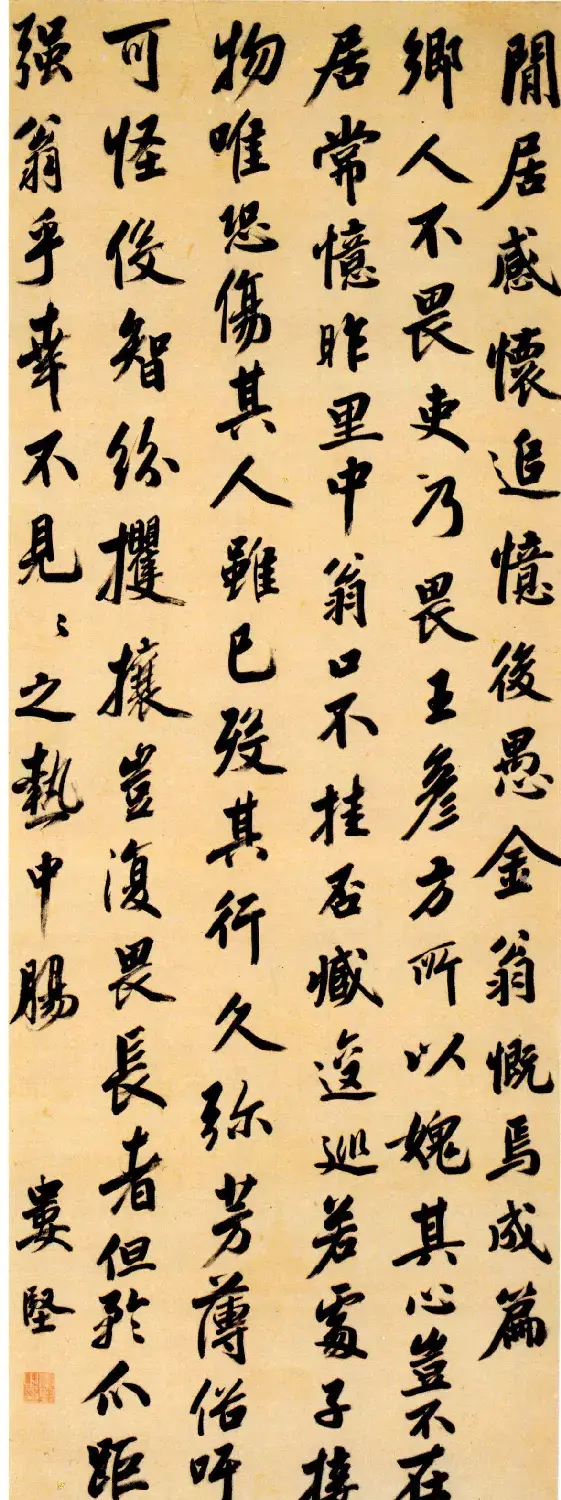 閒居感懷追憶後愚金翁慨焉成篇
鄉人不畏吏乃畏王彥方所以媿其心豈不在
居常憶昨里中翁口不挂否臧逡巡若處子接
物唯恐傷其人雖已歿其行久弥芳薄俗吁
可怪役智紛攫攘豈復畏長者但矜爪距
强翁乎幸不見見之熱中腸
婁堅